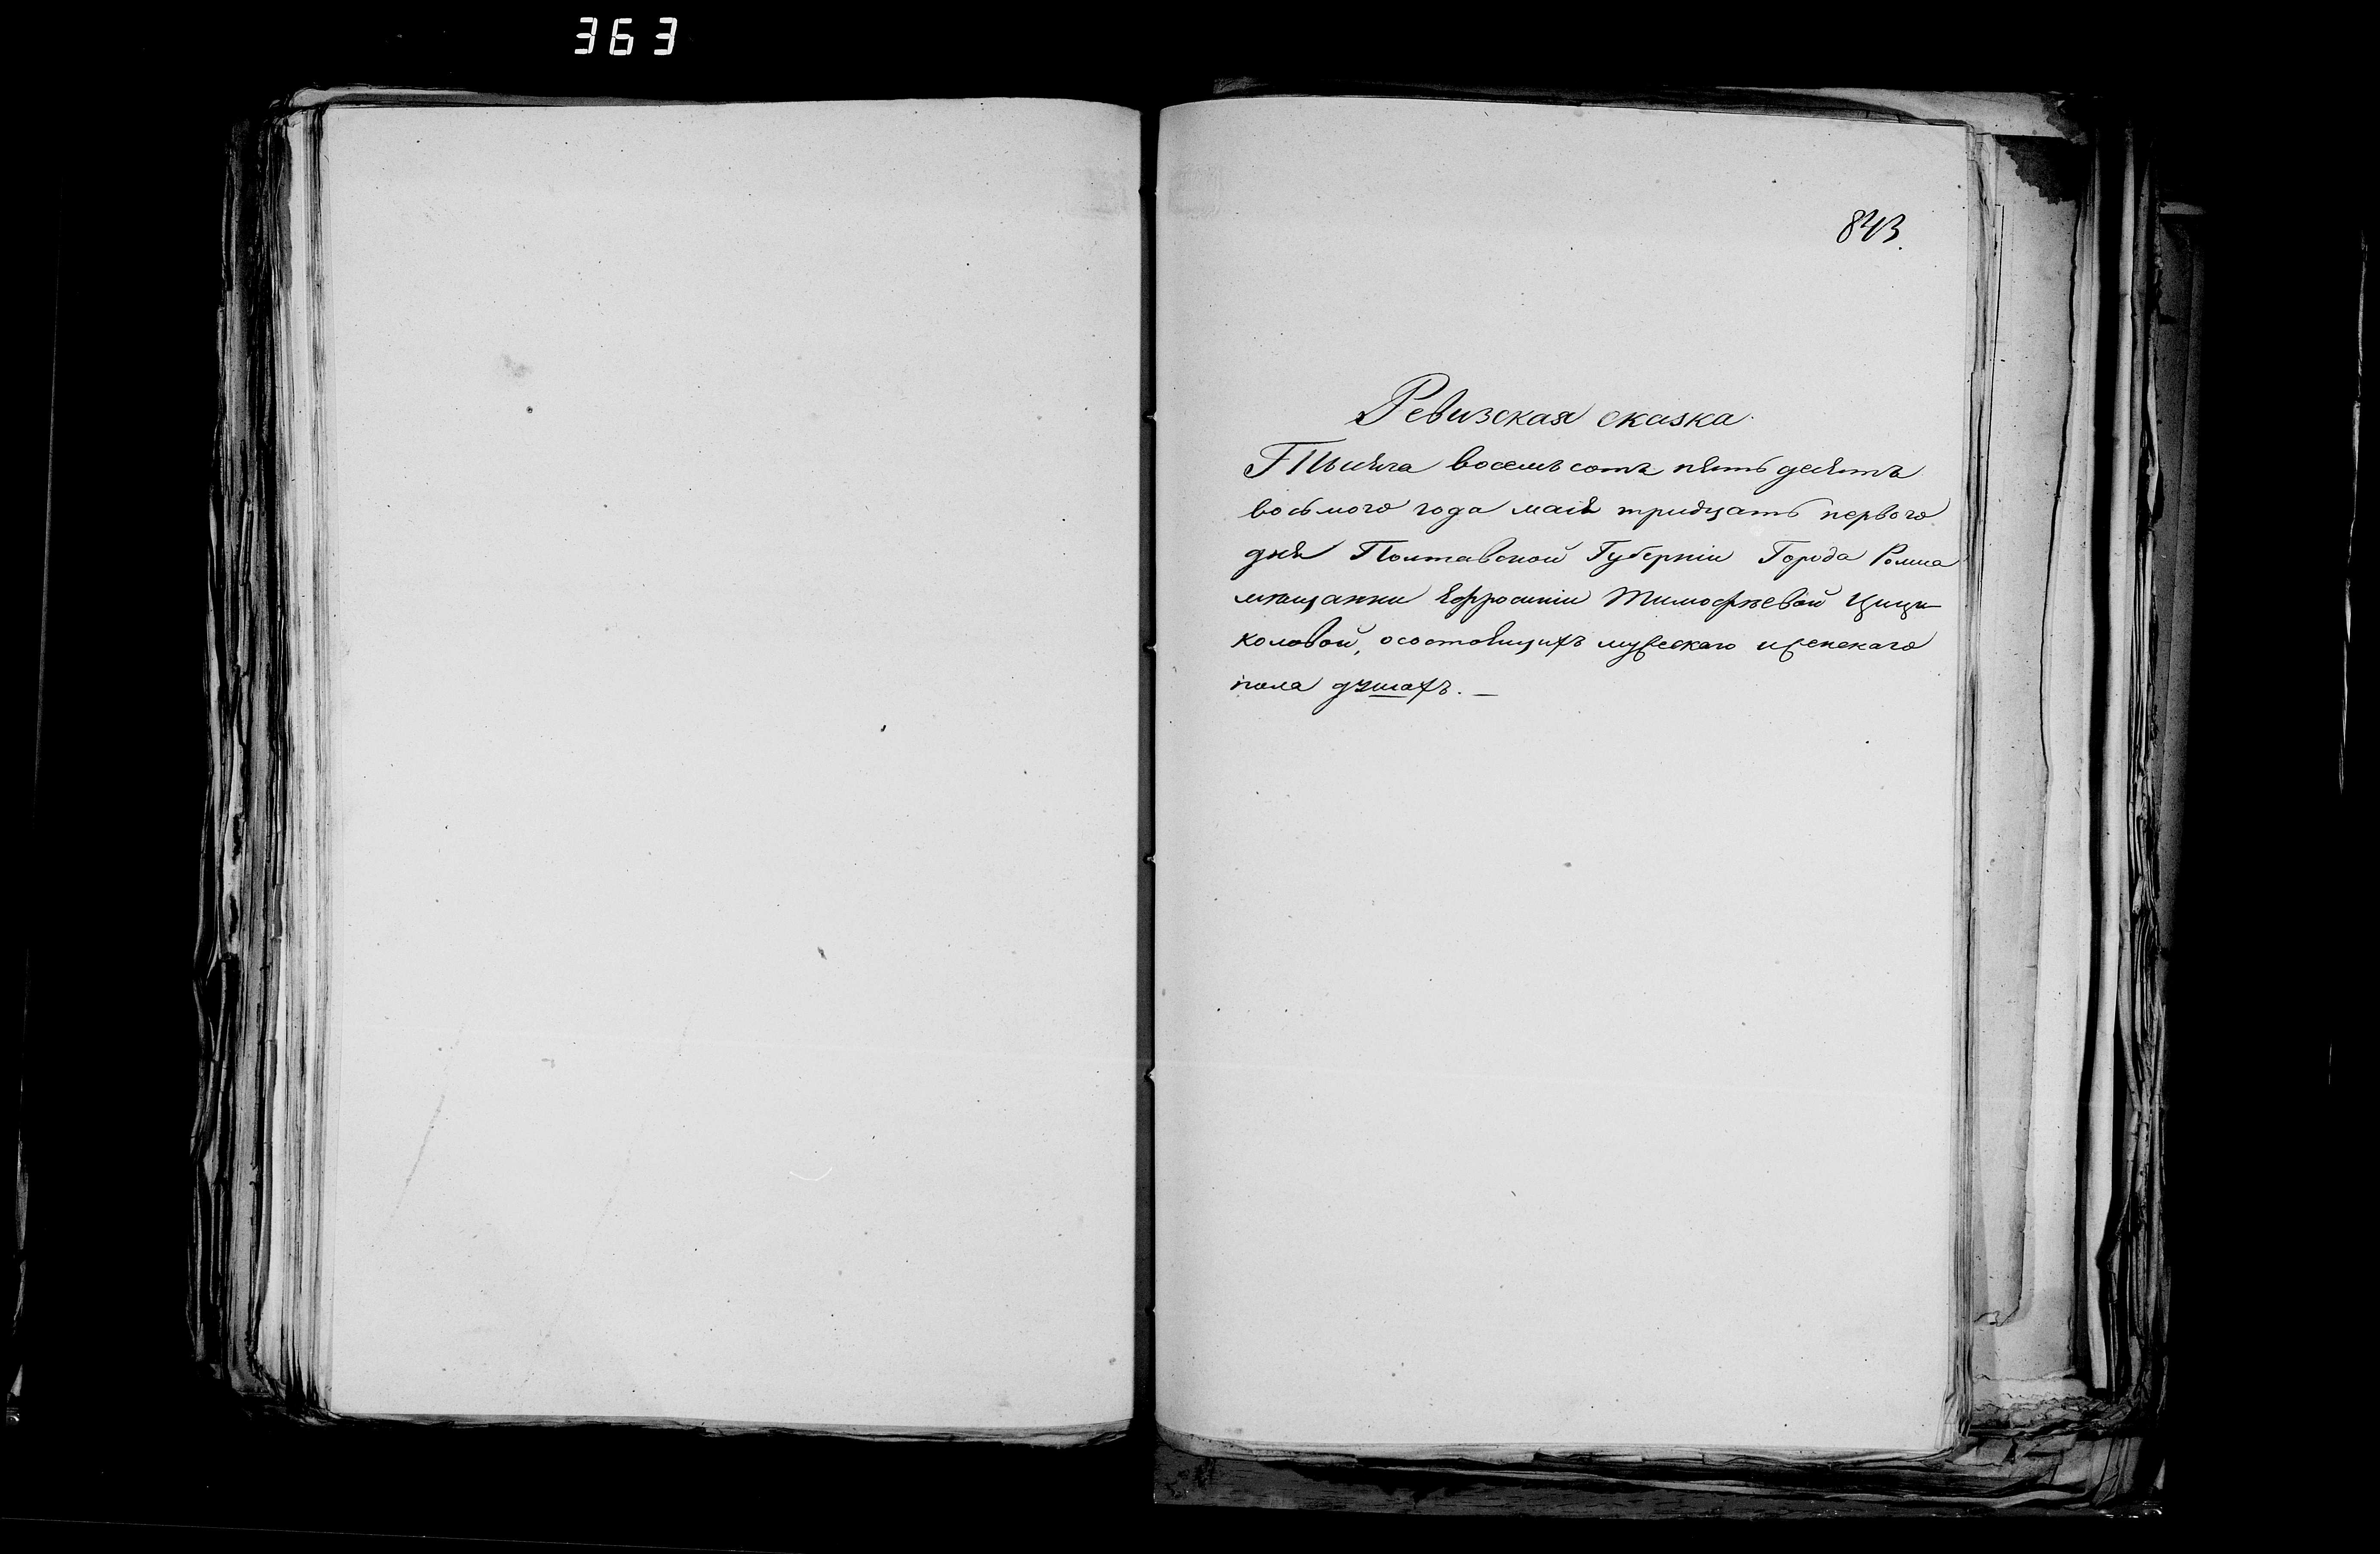 363
843.
Ревизская сказка
Тысяча восемьсотъ пятьдесятъ
восьмого года маія тридцать первого
дня Полтавской Губерніи Города Ромна
мѣщанки Ефросиніи Тимофѣевой
коловой, о состоящихъ мужескаго и женскаго
пола душахъ. —